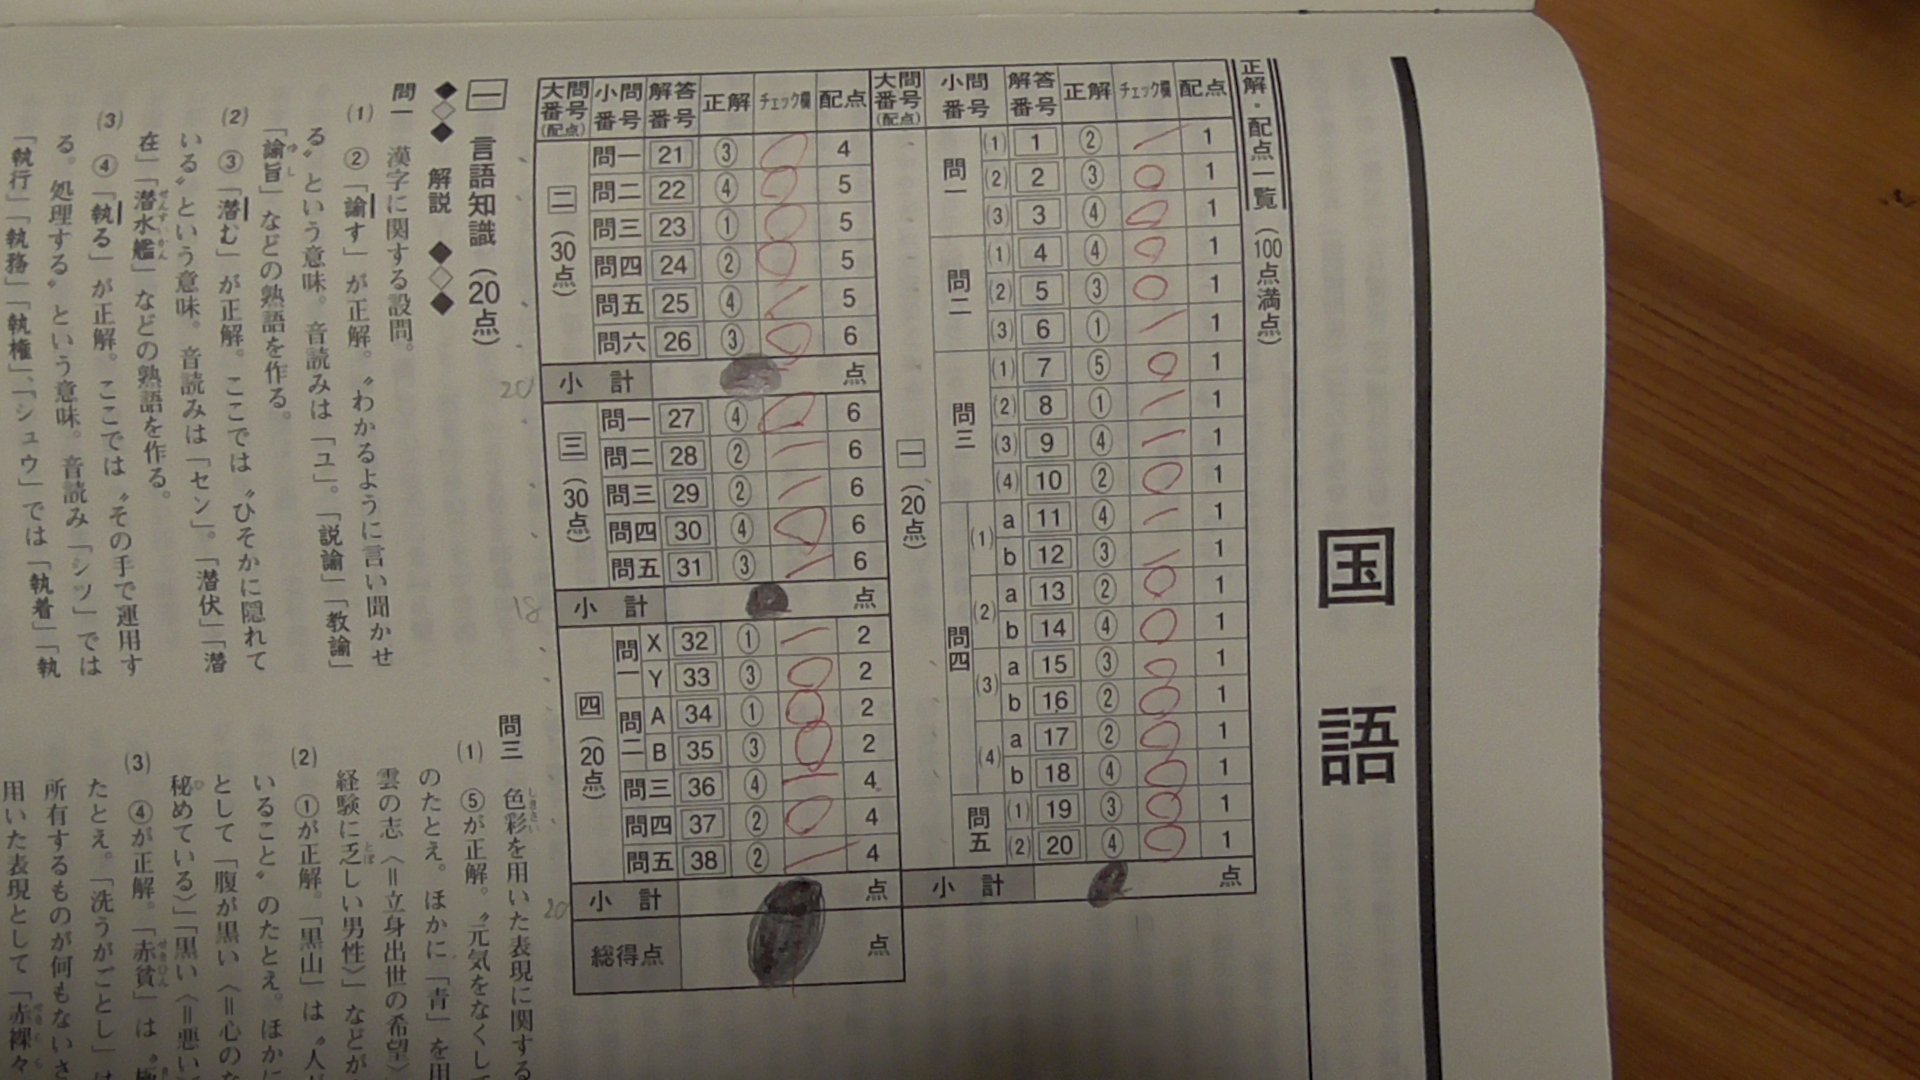 国語
正解・配点一覧（100点満点）
大問番号(配点) 小問番号 解答番号 正解 チェック欄 配点
一（20点）
問一 (1) 1 ② 1
(2) 2 ③ 1
(3) 3 ④ 1
問二 (1) 4 ④ 1
(2) 5 ③ 1
(3) 6 ① 1
問三 (1) 7 ⑤ 1
(2) 8 ① 1
(3) 9 ④ 1
(4) 10 ② 1
問四 (1) a 11 ④ 1
b 12 ③ 1
(2) a 13 ② 1
b 14 ④ 1
(3) a 15 ③ 1
b 16 ② 1
(4) a 17 ② 1
b 18 ④ 1
問五 (1) 19 ③ 1
(2) 20 ④ 1
小計 点
大問番号(配点) 小問番号 解答番号 正解 チェック欄 配点
二（30点）
問一 21 ③ 4
問二 22 ④ 5
問三 23 ① 5
問四 24 ② 5
問五 25 ④ 5
問六 26 ③ 6
小計 点
20
三（30点）
問一 27 ④ 6
問二 28 ② 6
問三 29 ② 6
問四 30 ④ 6
問五 31 ③ 6
小計 点
18
四（20点）
問一 X 32 ① 2
Y 33 ③ 2
問二 A 34 ① 2
B 35 ③ 2
問三 36 ④ 4
問四 37 ② 4
問五 38 ② 4
小計 点
20
総得点 点
一 言語知識（20点）
◆◇◆ 解説 ◆◇◆
問一 漢字に関する設問。
(1) ②「諭す」が正解。〝わかるように言い聞かせ
る〟という意味。音読みは「ユ」。「説諭」「教諭」
「諭旨」などの熟語を作る。
(2) ③「潜む」が正解。ここでは〝ひそかに隠れて
いる〟という意味。音読みは「セン」。「潜伏」「潜
在」「潜水艦」などの熟語を作る。
(3) ④「執る」が正解。ここでは〝その手で運用す
る。処理する〟という意味。音読み「シツ」では
「執行」「執務」「執権」、「シュウ」では「執着」「執
問三 色彩を用いた表現に関する
(1) ⑤が正解。〝元気をなくして
のたとえ。ほかに「青」を用
雲の志〈＝立身出世の希望〉
経験に乏しい男性〉」などが
(2) ①が正解。「黒山」は〝人が
いること〟のたとえ。ほかに
として「腹が黒い〈＝心のな
秘めている〉」「黒い〈＝悪い
(3) ④が正解。「赤貧」は〝極
たとえ。「洗うがごとし」は
所有するものが何もないさ
用いた表現として「赤裸々